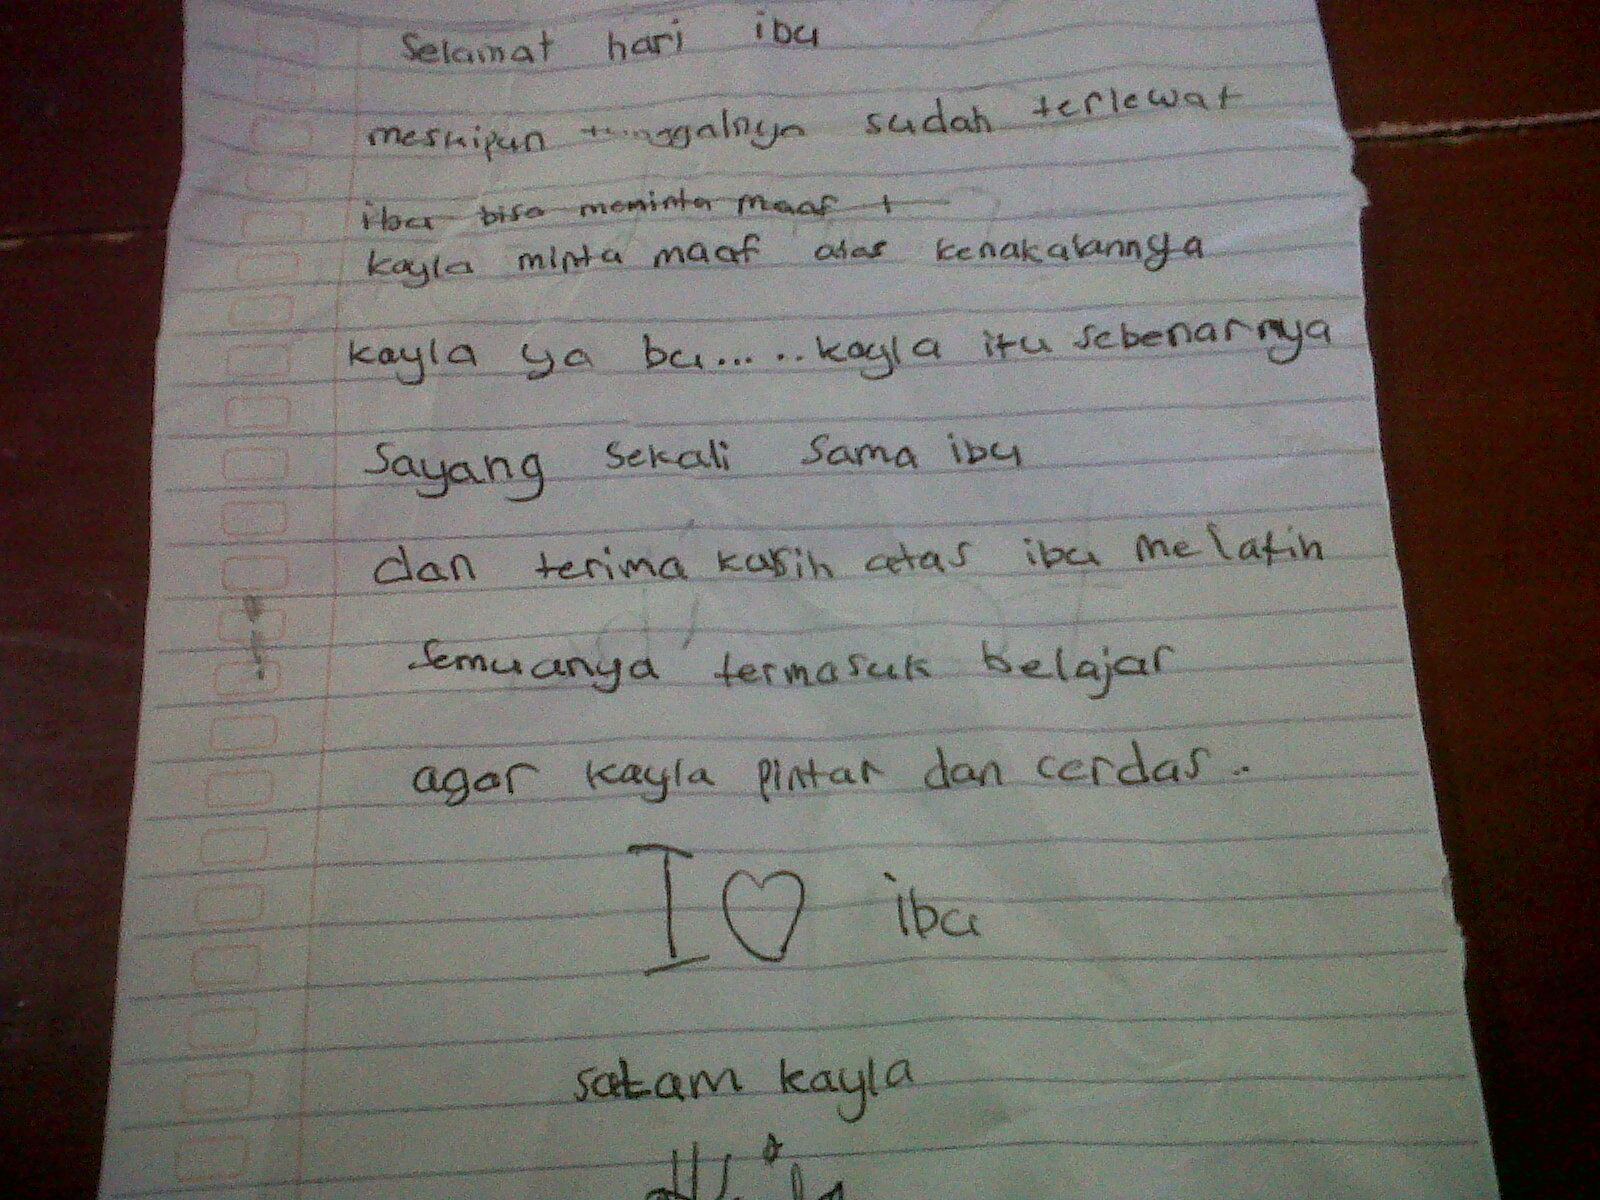 Selamat hari ibu
meskipun tanggalnya sudah terlewat
ibu bisa meminta maaf t
kayla minta maaf atas kenakalannya
kayla ya bu.....kayla itu sebenarnya
Sayang sekali sama ibu
dan terima kasih atas ibu melatih
Semuanya termasuk belajar
agar kayla pintar dan cerdas..
I ♡ ibu
salam kayla